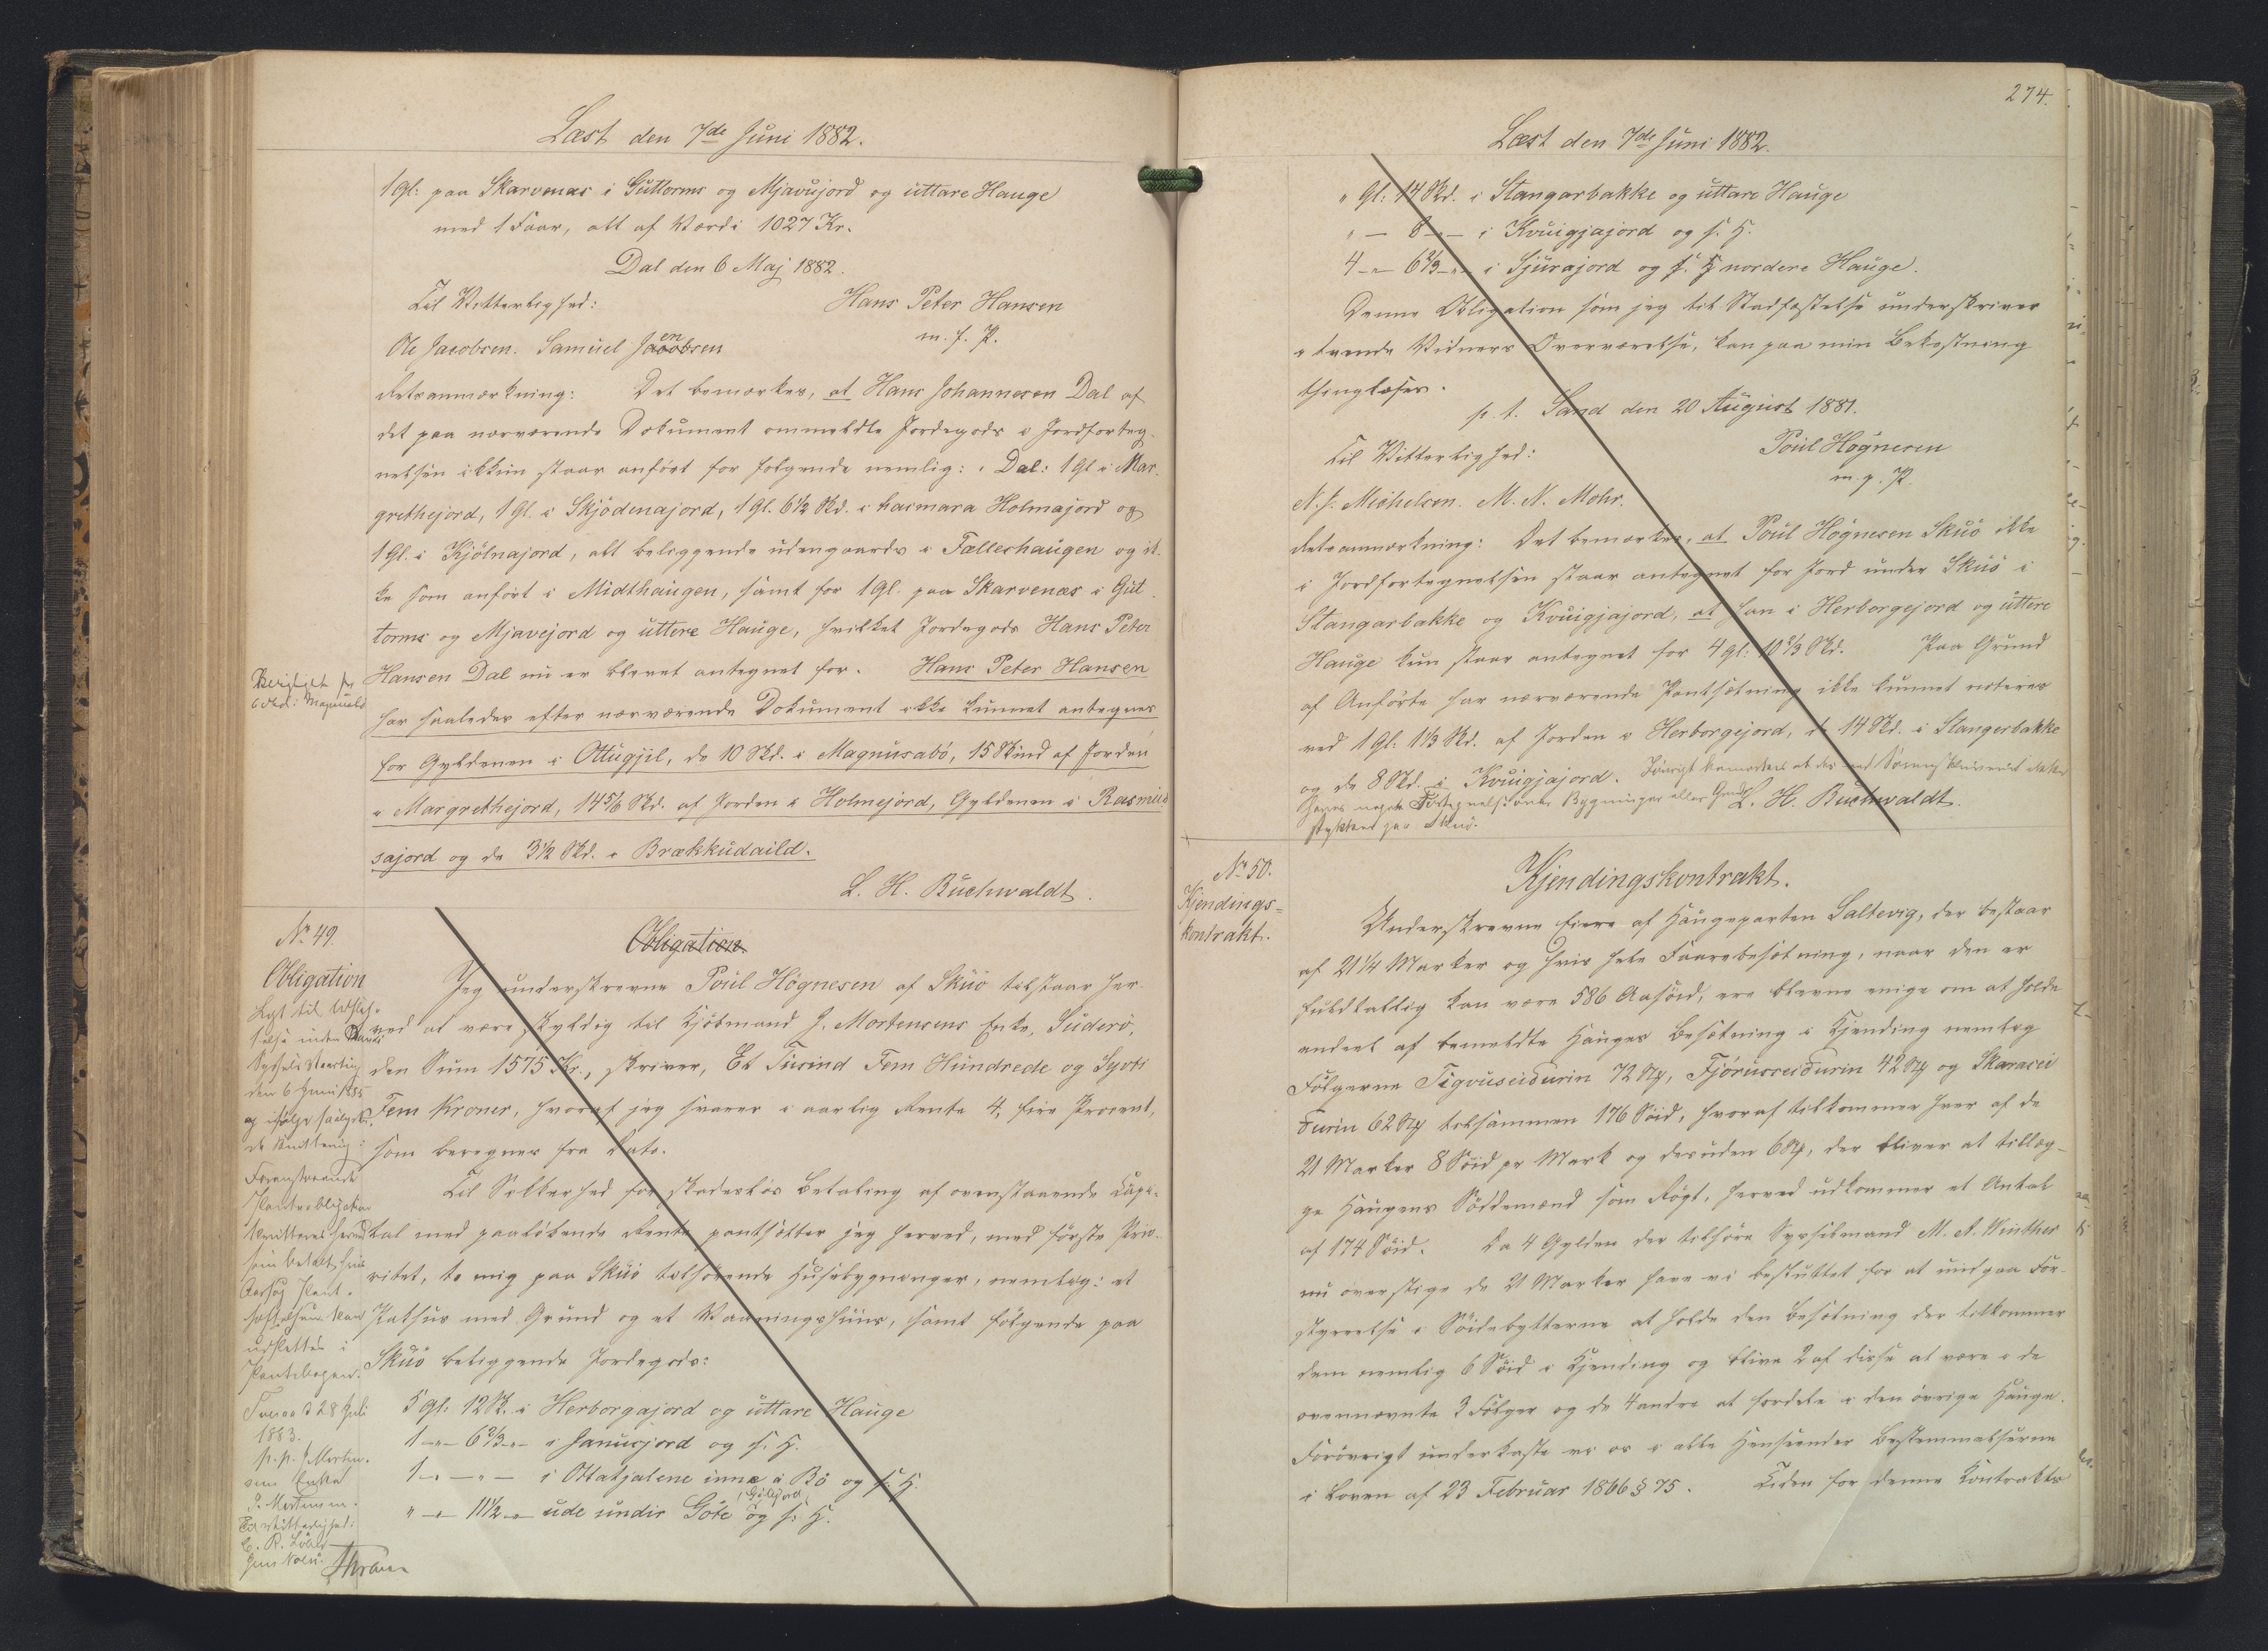 Læst den 7de Juni 1882.
1 Gl: paa Skarvenæs i Guttorms og Mjavujord og uttare Hauge
med 1 Faar, alt af Værdi 1027 Kr.
Dal den 6 Maj 1882.
Til Vitterlighed:
Hans Peter Hansen
m. f. P.
Ole Jacobsen. Samuel Jacobsen
Retsanmærkning: Det bemærkes, at Hans Johannesen Dal af
det paa nærværende Dokument ommeldte Jordegods i Jordforteg-
nelsen ikkun staar anført for følgende nemlig: i Dal: 1 Gl i Mar-
grethejord, 1 Gl. i Skjødenajord, 1 Gl. 6 1/2 Skd. i harmara Holmajord og
1 Gl. i Kjølnajord, alt beliggende udengaards i Fælleshaugen og ik-
ke som anført i Midthaugen, samt for 1 Gl. paa Skarvenæs i Gut-
torms og Mjavejord og uttere Hauge, hvilket Jordegods Hans Peter
Hansen Dal nu er blevet antegnet for. Hans Peter Hansen
har saaledes efter nærværende Dokument ikke kunnet antegnes
for Gyldenen i Ottugjil, de 10 Skd. i Magnusabø, 15 Skind af Jorden
i Margrethejord, 14 5/6 Skd. af Jorden i Holmejord, Gyldenen i Rasmus-
sajord og de 3 1/2 Skd. i Brækkudaild.
L. H. Buchwaldt.
No 49.
Obligation
Obligation
Jeg underskrevne Poul Høgnesen af Skuø tilstaar her-
ved at være skyldig til Kjøbmand J. Mortensens Enke, Suderø,
den Sum 1575 Kr., skriver, Et Tusind Fem Hundrede og Syvti
Fem Kroner, hvoraf jeg svarer i aarlig Rente 4, fire Procent,
som beregnes fra Dato.
Til Sikkerhed for skadesløs Betaling af ovenstaaende Capi-
tal med paaløbende Rente pantsætter jeg herved, med første Prio-
ritet, de mig paa Skuø tilhørende Husebygninger, nemlig: et
Pakhus med Grund og et Vaaningshuus, samt følgende paa
Skuø beliggende Jordegods:
5 Gl: 12 Sk. i Herborgajord og uttare Hauge
1 -"- 6 2/3 -"- i Janusjord og s. H.
1 -"- -"- i Ottatjalene inna a Bø og s. H.
" -"- 11 1/2 -"- ude undir Gøte (Gulljord) og s. H.
Lyst til Udslet-
telse inden Sandø
Syssels Vaarting
den 6 Juni 1885
Foranstaaende
Panteobligation
kvitteres herved
som betalt, hvis
Aarsag Pant-
hæftelsen kan
udslettes i
Pantebogen.
28 Juli
1883.
p. p. J. Morten-
sens Enke
J. Mortensen.
Til Vitterlighed:
274.
Læst den 7de Juni 1882.
" Gl: 14 Skd. i Stangarbakke og uttare Hauge
" — 8 -"- i Kvuigjajord og s. H.
4 -"- 6 2/3 -"- i Sjurajord og s. H nordere Hauge.
Denne Obligation som jeg til Stadfæstelse underskriver
i tvende Vidners Overværelse, kan paa min Bekostning
thinglæses.
p. t. Sand den 20 August 1881.
Til Vitterlighed:
Poul Høgnesen
m. p. P.
N. J. Michelsen. M. N. Mohr.
Retsanmærkning: Det bemærkes, at Poul Høgnesen Skuø ikke
i Jordfortegnelsen staar antegnet for Jord under Skuø i
Stangarbakke og Kvuigjajord, at han i Herborgejord og uttere
Hauge kun staar antegnet for 4 Gl: 10 2/3 Skd. Paa Grund
af Anførte har nærværende Pantsætning ikke kunnet noteres
ved 1 Gl: 1 1/3 Skd. af Jorden i Herborgejord, de 14 Skd. i Stangerbakke
og de 8 Skd. i Kvuigjajord. Iøvrigt bemærkes at der ved Sorenskriveriet ikke
haves nogen Fortegnelse over Bygninger eller Grund-
stykker paa Skuø.
L. H. Buchwaldt.
No 50.
Kjendings-
kontrakt.
Kjendingskontrakt.
Underskrevne Eiere af Haugeparten Saltevig, der bestaar
af 21 1/4 Marker og hvis hele Faarebesætning, naar den er
fuldtallig kan være 586 Aasøid, ere blevne enige om at holde
endeel af bemeldte Hauges Besætning i Kjending nemlig
Følgerne Tigvuseidurin 72 Stk, Fjørusseidurin 42 Stk og Skarasei-
durin 62 Stk tilsammen 176 Søid, hvoraf tilkommer hver af de
21 Marker 8 Søid pr Mark og desuden 6 Stk, der bliver at tillæg-
ge Haugens Søddemænd som Røgt, herved udkommer et Antal
af 174 Søid. Da 4 Gylden der tilhøre Sysselmand M. A. Winther
nu overstige de 21 Marker have vi besluttet for at undgaa For-
styrrelse i Søidebytterne at holde den Besætning der tilkommer
dem nemlig 6 Søid i Kjending og blive 2 af disse at være i de
ovennævnte 3 Følger og de 4 andre at fordele i den øvrige Hauge.
Forøvrigt underkaste vi os i alle Henseender Bestemmelserne
i Loven af 23 Februar 1866 § 75. Tiden for denne Kontrakts